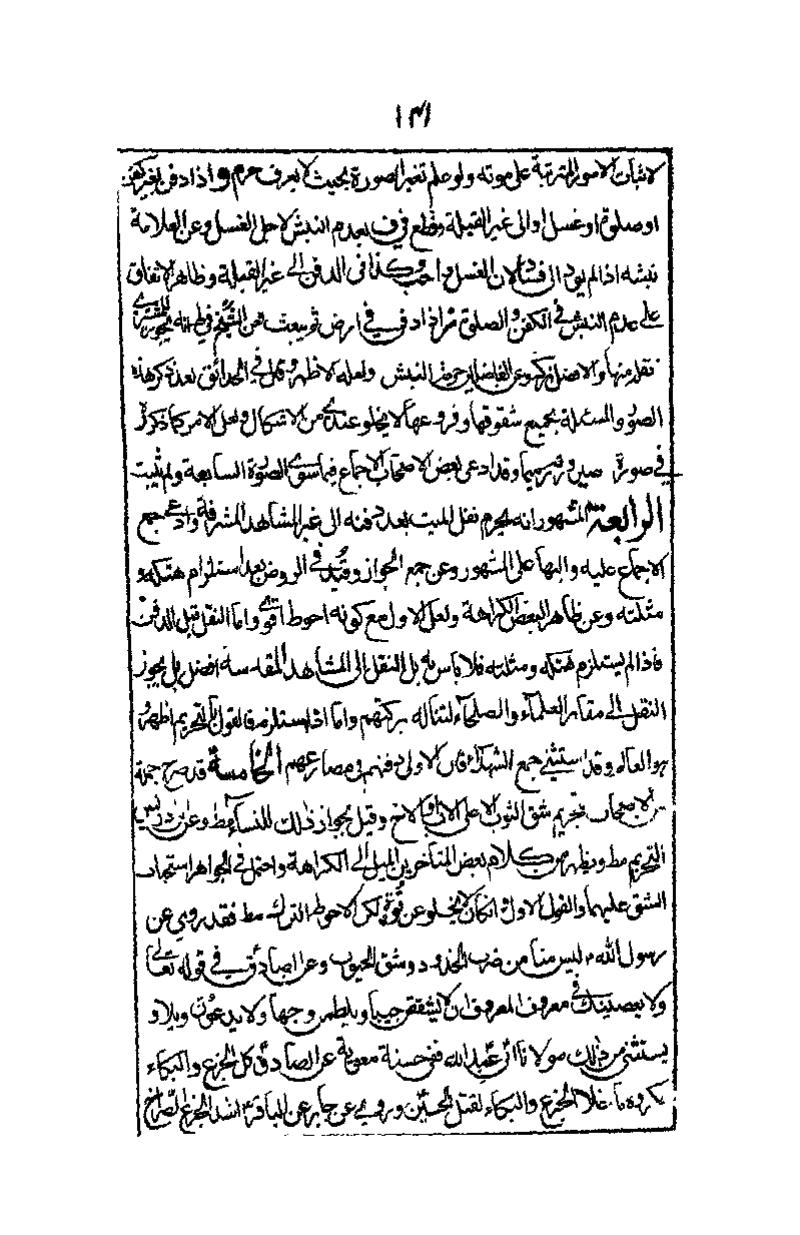 ١٣١
لاثبات الامور المترتبة على موته ولو علم تغير الصورة بحيث لا يعرف حرم واذا دفن بغير كفن
او صلوة او غسل او الى غير القبلة فقطع في ف بعدم النبش لاجل الغسل وعن العلامة
نبشه اذا لم يؤد الى فساد لان الغسل واجب وكذا في الدفن الى غير القبلة وظاهر الاتفاق
على عدم النبش في الكفن والصلوة ثم اذا دفن في ارض ثم بيعت فعن الشيخ في ط انه يجوز للمشتري
نقله منها والافضل تركه وعن الفاضلين حرمة النبش ولعله الاظهر وقال في الحدائق بعد ذكر هذه
الصور والمسئلة بجميع شقوقها وفروعها لا يخلو عندي من الاشكال ولعل الامر كما ذكره
في صورة وقد ادعى بعض الاصحاب الاجماع فيما سوى الصورة السابعة ولم يثبت
الرابعة المشهور انه يحرم نقل الميت بعد دفنه الى غير المشاهد المشرفة وادعى جمع
الاجماع عليه واليها على المشهور وعن جمع الجواز وقيده في الروض بعد استلزام هتكه و
مثلته وعن ظاهر البعض الكراهة ولعل الاول مع كونه احوط اقوى واما النقل قبل الدفن
فاذا لم يستلزم هتكه ومثلته فلا باس به بل النقل الى المشاهد المقدسة افضل بل يجوز
النقل الى مقابر العلماء والصلحاء لتناله بركتهم واما اذا استلزمه فالقول بالتحريم اظهر و
هو العالم وقد استثنى جمع الشهداء فان الاولى دفنهم في مصارعهم الخامسة قد صرح جملة
من الاصحاب بتحريم شق الثوب الا على الاب والاخ وقيل بجواز ذلك للنساء مط وعن ابن ادريس
التحريم مط ويظهر من كلام بعض المتأخرين الميل الى الكراهة واحتمل في الجواهر استحباب
الشق عليهما والقول الاول وان كان لا يخلو عن قوة لكن الاحوط الترك مط فقد روي عن
رسول الله ص ليس منا من ضرب الخدود وشق الجيوب وعن الصادق في قوله تعالى
ولا يعصينك في معروف المعروف ان لا يشققن جيبا ولا يلطمن وجها ولا يدعون ويلا و
يستثنى من ذلك مولانا ابي عبد الله ففي حسنة معوية عن الصادق كل الجزع والبكاء
مكروه ما خلا الجزع والبكاء لقتل الحسين وروي عن جابر عن الباقر اشد الجزع الصراخ